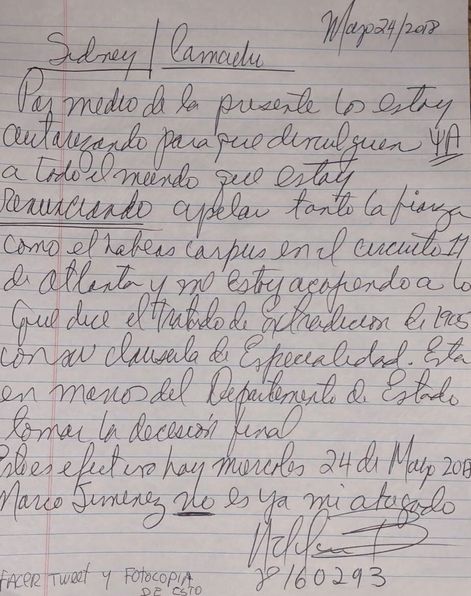 Mayo 24/2018
Sidney / Camaelu
Por medio de la presente los estoy
autorizando para que divulguen YA
a todo el mundo que estoy
renunciando apelar tanto la fianza
como el habeas corpus en el circuito 11
de Atlanta y me estoy acogiendo a lo
que dice el Tratado de Extradicion de 1905
con su clausula de Especialidad. Esta
en manos del Departamento de Estado
tomar la decesión final
Esto es efectivo hoy miercoles 24 de Mayo 2018
Marco Jimenez no es ya mi abogado
160293
FACER TWEET Y FOTOCOPIA
DE ESTO